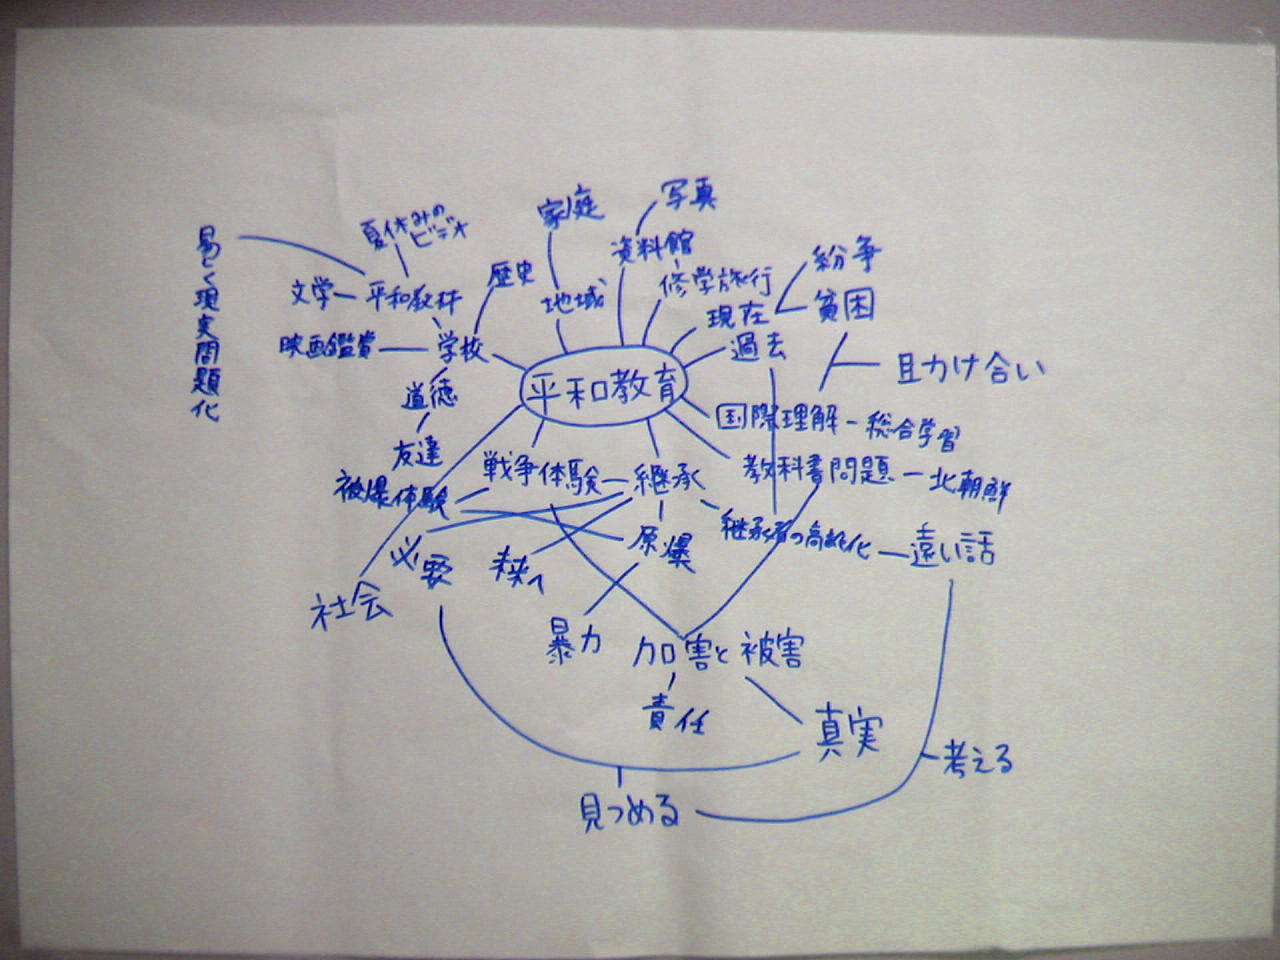 家庭
写真
夏休みの
ビデオ
資料館
紛争
歴史
修学旅行
文学
平和教材
地域
現在
貧困
映画鑑賞
学校
過去
現実問題化
助け合い
道徳
平和教育
国際理解
総合学習
友達
戦争体験
継承
教科書問題
北朝鮮
被爆体験
継承者の高齢化
遠い話
必要
未来へ
原爆
社会
暴力
加害と被害
責任
真実
考える
見つめる